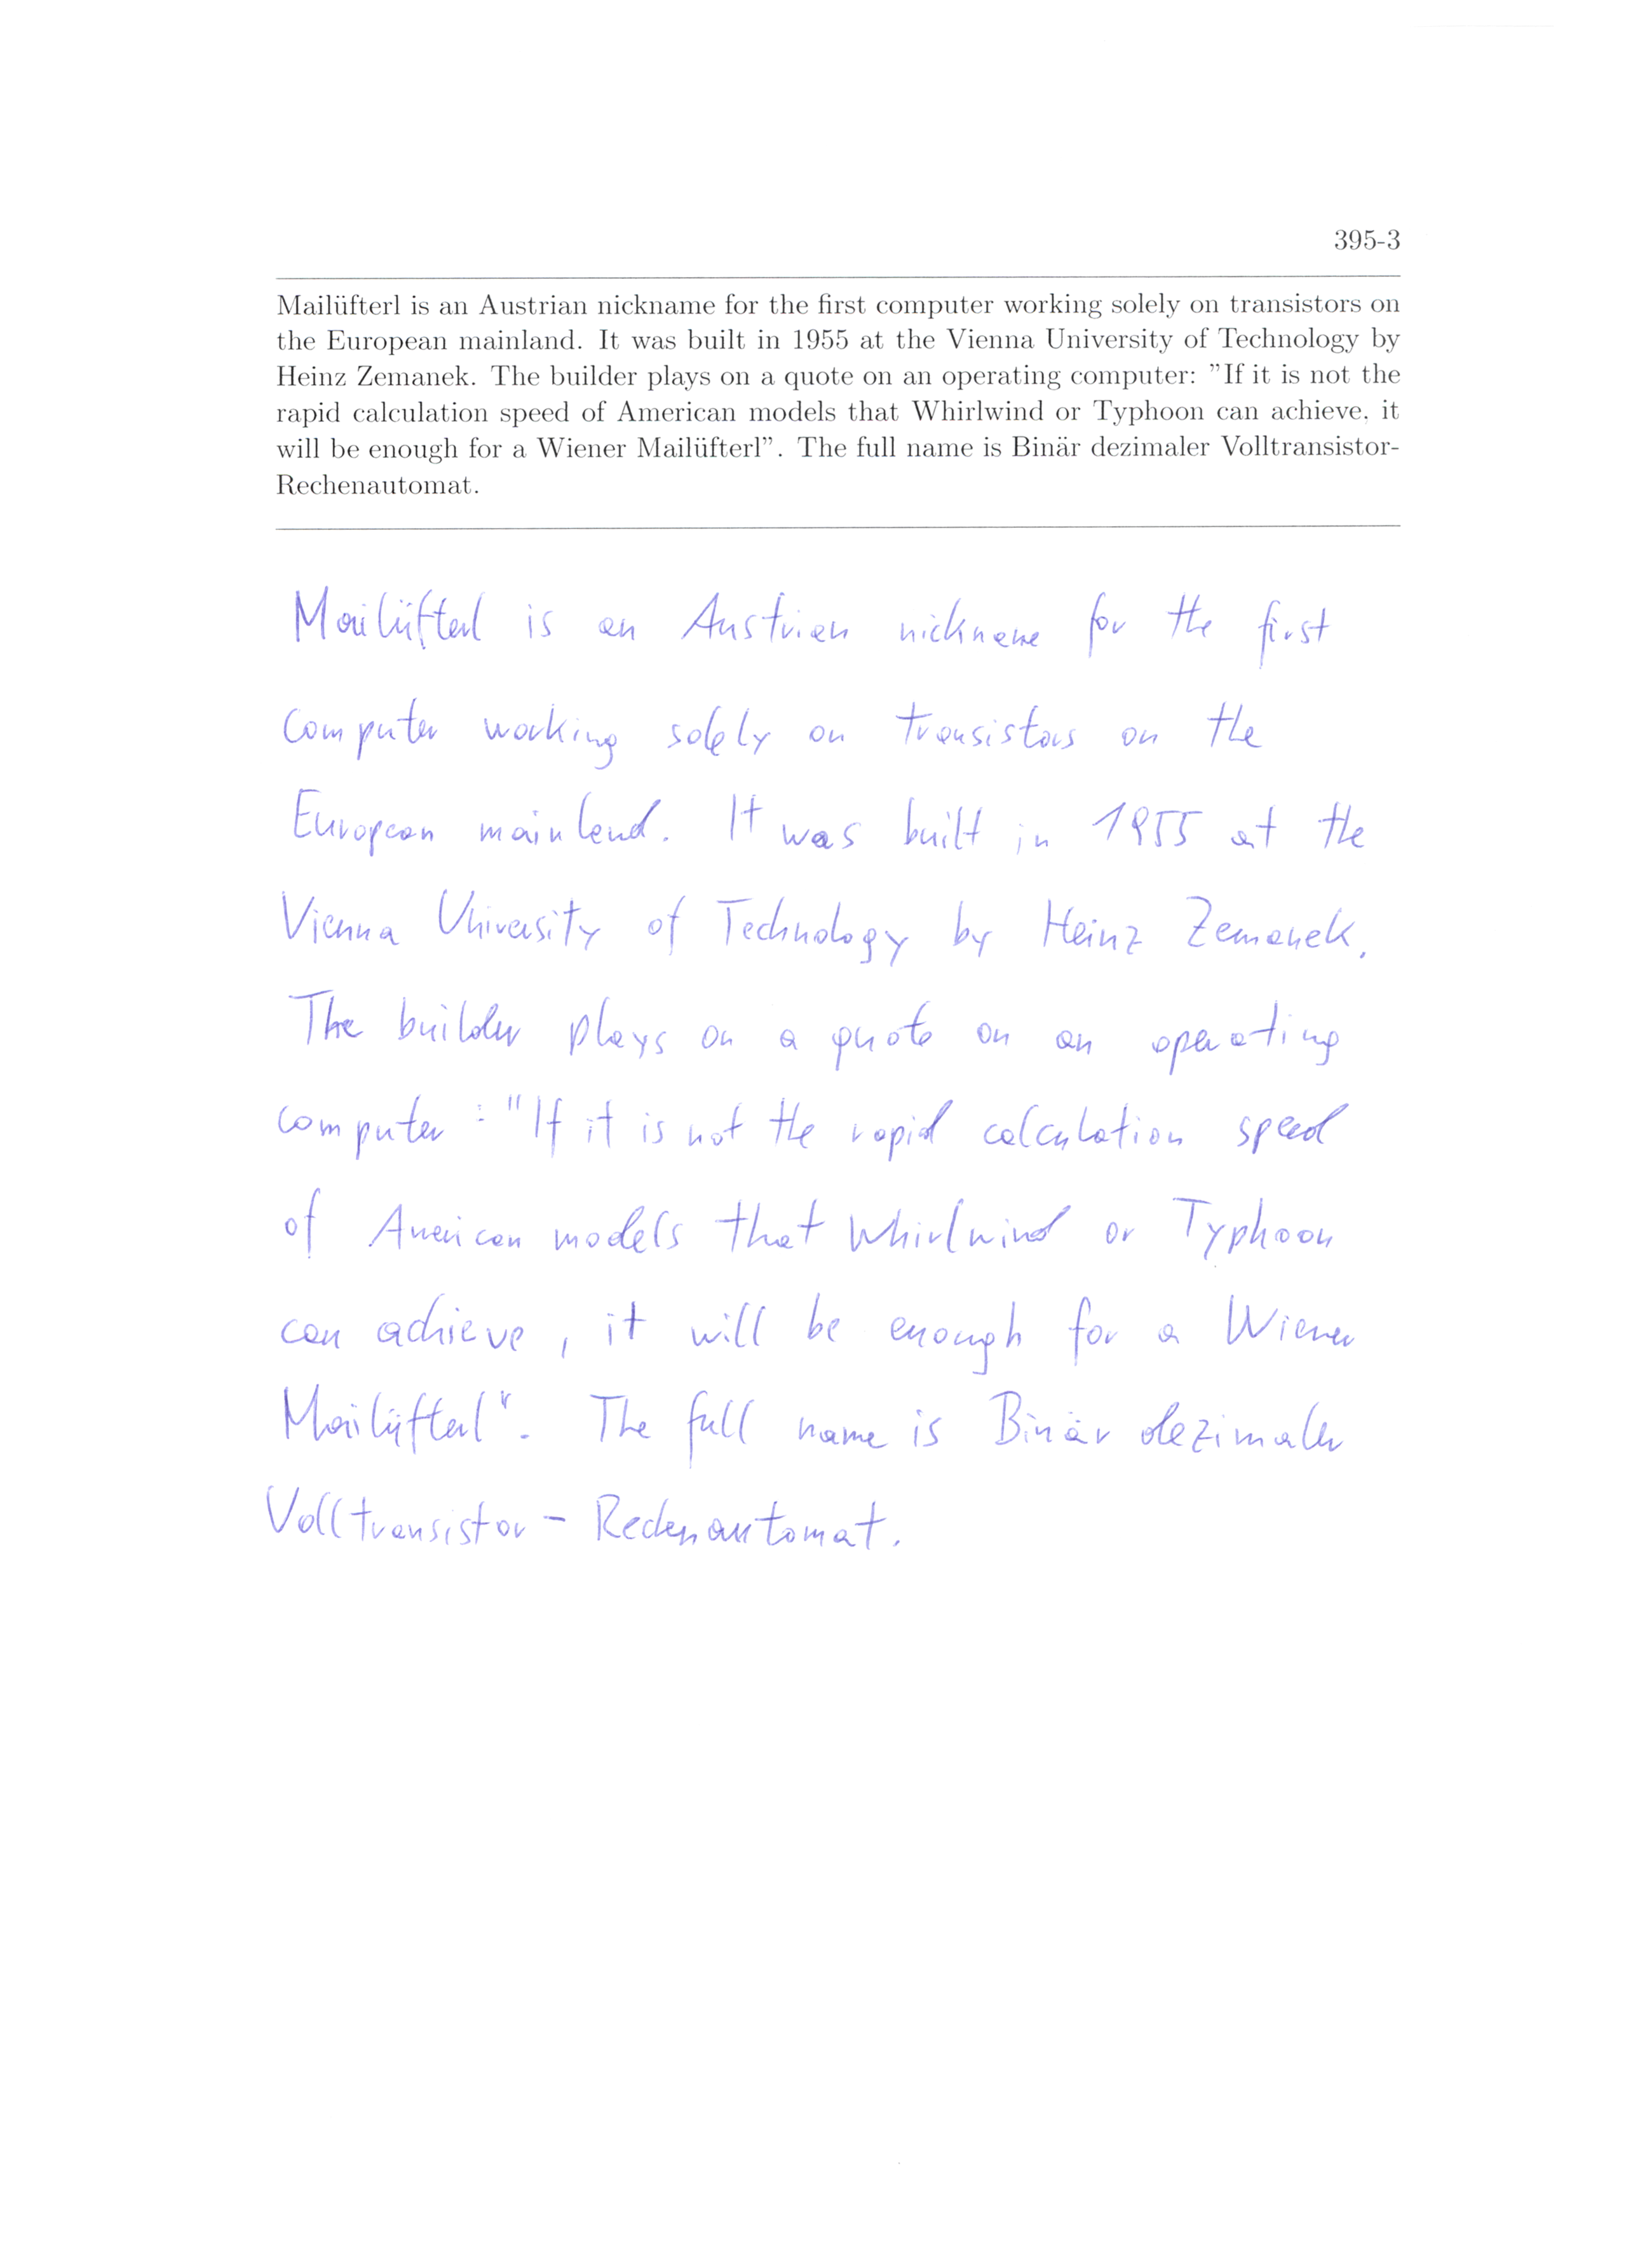 395-3
Mailüfterl is an Austrian nickname for the first computer working solely on transistors on
the European mainland. It was built in 1955 at the Vienna University of Technology by
Heinz Zemanek. The builder plays on a quote on an operating computer: "If it is not the
rapid calculation speed of American models that Whirlwind or Typhoon can achieve, it
will be enough for a Wiener Mailüfterl". The full name is Binär dezimaler Volltransistor-
Rechenautomat.
Mailüfterl is an Austrian nickname for the first
computer working solely on transistors on the
European mainland. It was built in 1955 at the
Vienna University of Technology by Heinz Zemanek.
The builder plays on a quote on an operating
computer : "If it is not the rapid calculation speed
of American models that Whirlwind or Typhoon
can achieve, it will be enough for a Wiener
Mailüfterl". The full name is Binär dezimaler
Volltransistor - Rechenautomat.